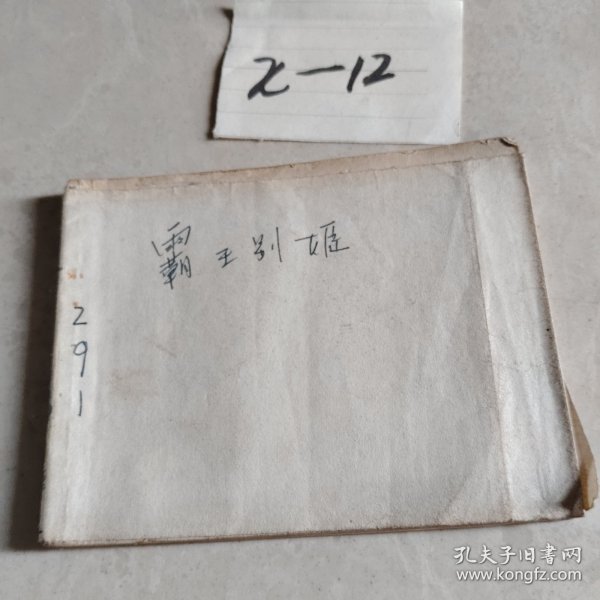 x-12
霸王别姬
291
孔夫子旧书网
www.kongfz.com